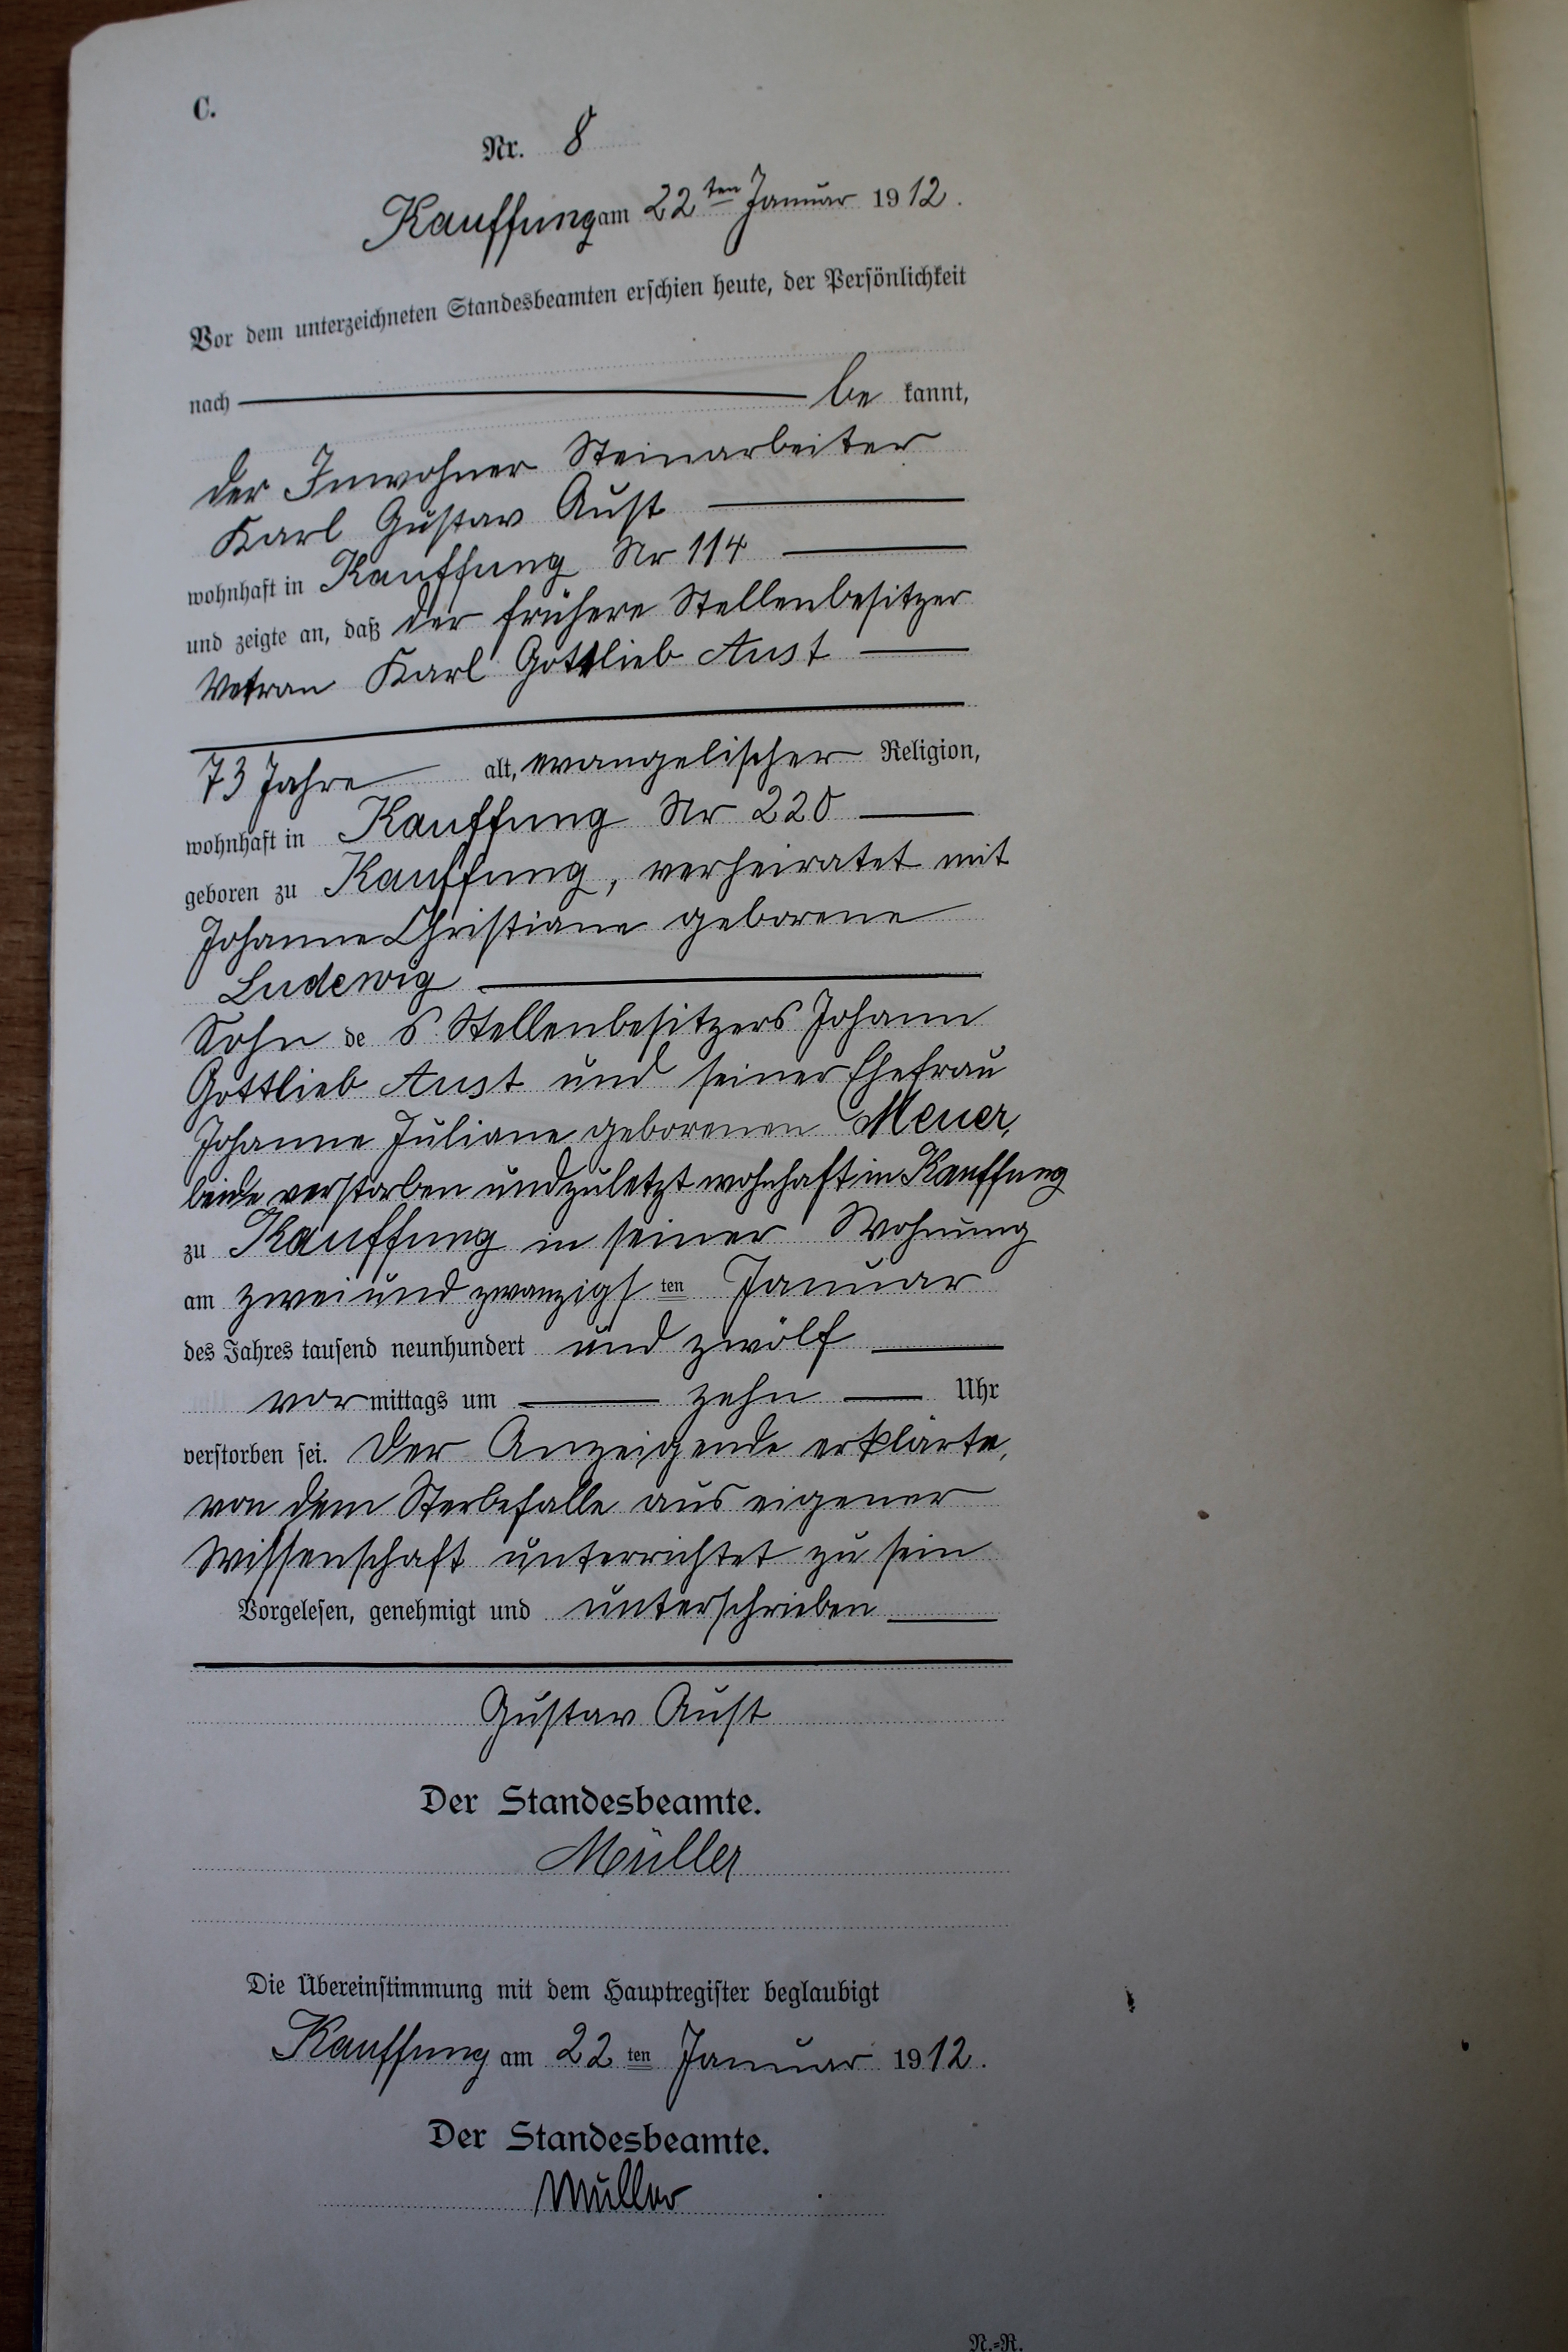 C.
Nr. 8
Kauffung am 22ten Januar 1912.
Vor dem unterzeichneten Standesbeamten erschien heute, der Persönlichkeit
nach be kannt,
der Inwohner Steinarbeiter
Karl Gustav Aust
wohnhaft in Kauffung Nr 114
und zeigte an, daß der frühere Stellenbesitzer
Karl Gottlieb Aust
73 Jahre alt, evangelischer Religion,
wohnhaft in Kauffung Nr 220
geboren zu Kauffung, verheiratet mit
Johanne Christiane geborene
Ludewig
Sohn de s Stellenbesitzers Johann
Gottlieb Aust und seiner Ehefrau
Johanne Juliane geborenen Meuer,
beide verstorben und zuletzt wohnhaft in Kauffung
zu Kauffung in seiner Wohnung
am zwei und zwanzigsten Januar
des Jahres tausend neunhundert und zwölf
vor mittags um zehn Uhr
verstorben sei. Der Anzeigende erklärte,
von dem Sterbefalle aus eigener
Wissenschaft unterrichtet zu sein
Vorgelesen, genehmigt und unterschrieben
Gustav Aust
Der Standesbeamte.
Müller
Die Übereinstimmung mit dem Hauptregister beglaubigt
Kauffung am 22ten Januar 1912.
Der Standesbeamte.
Müller
N.=R.